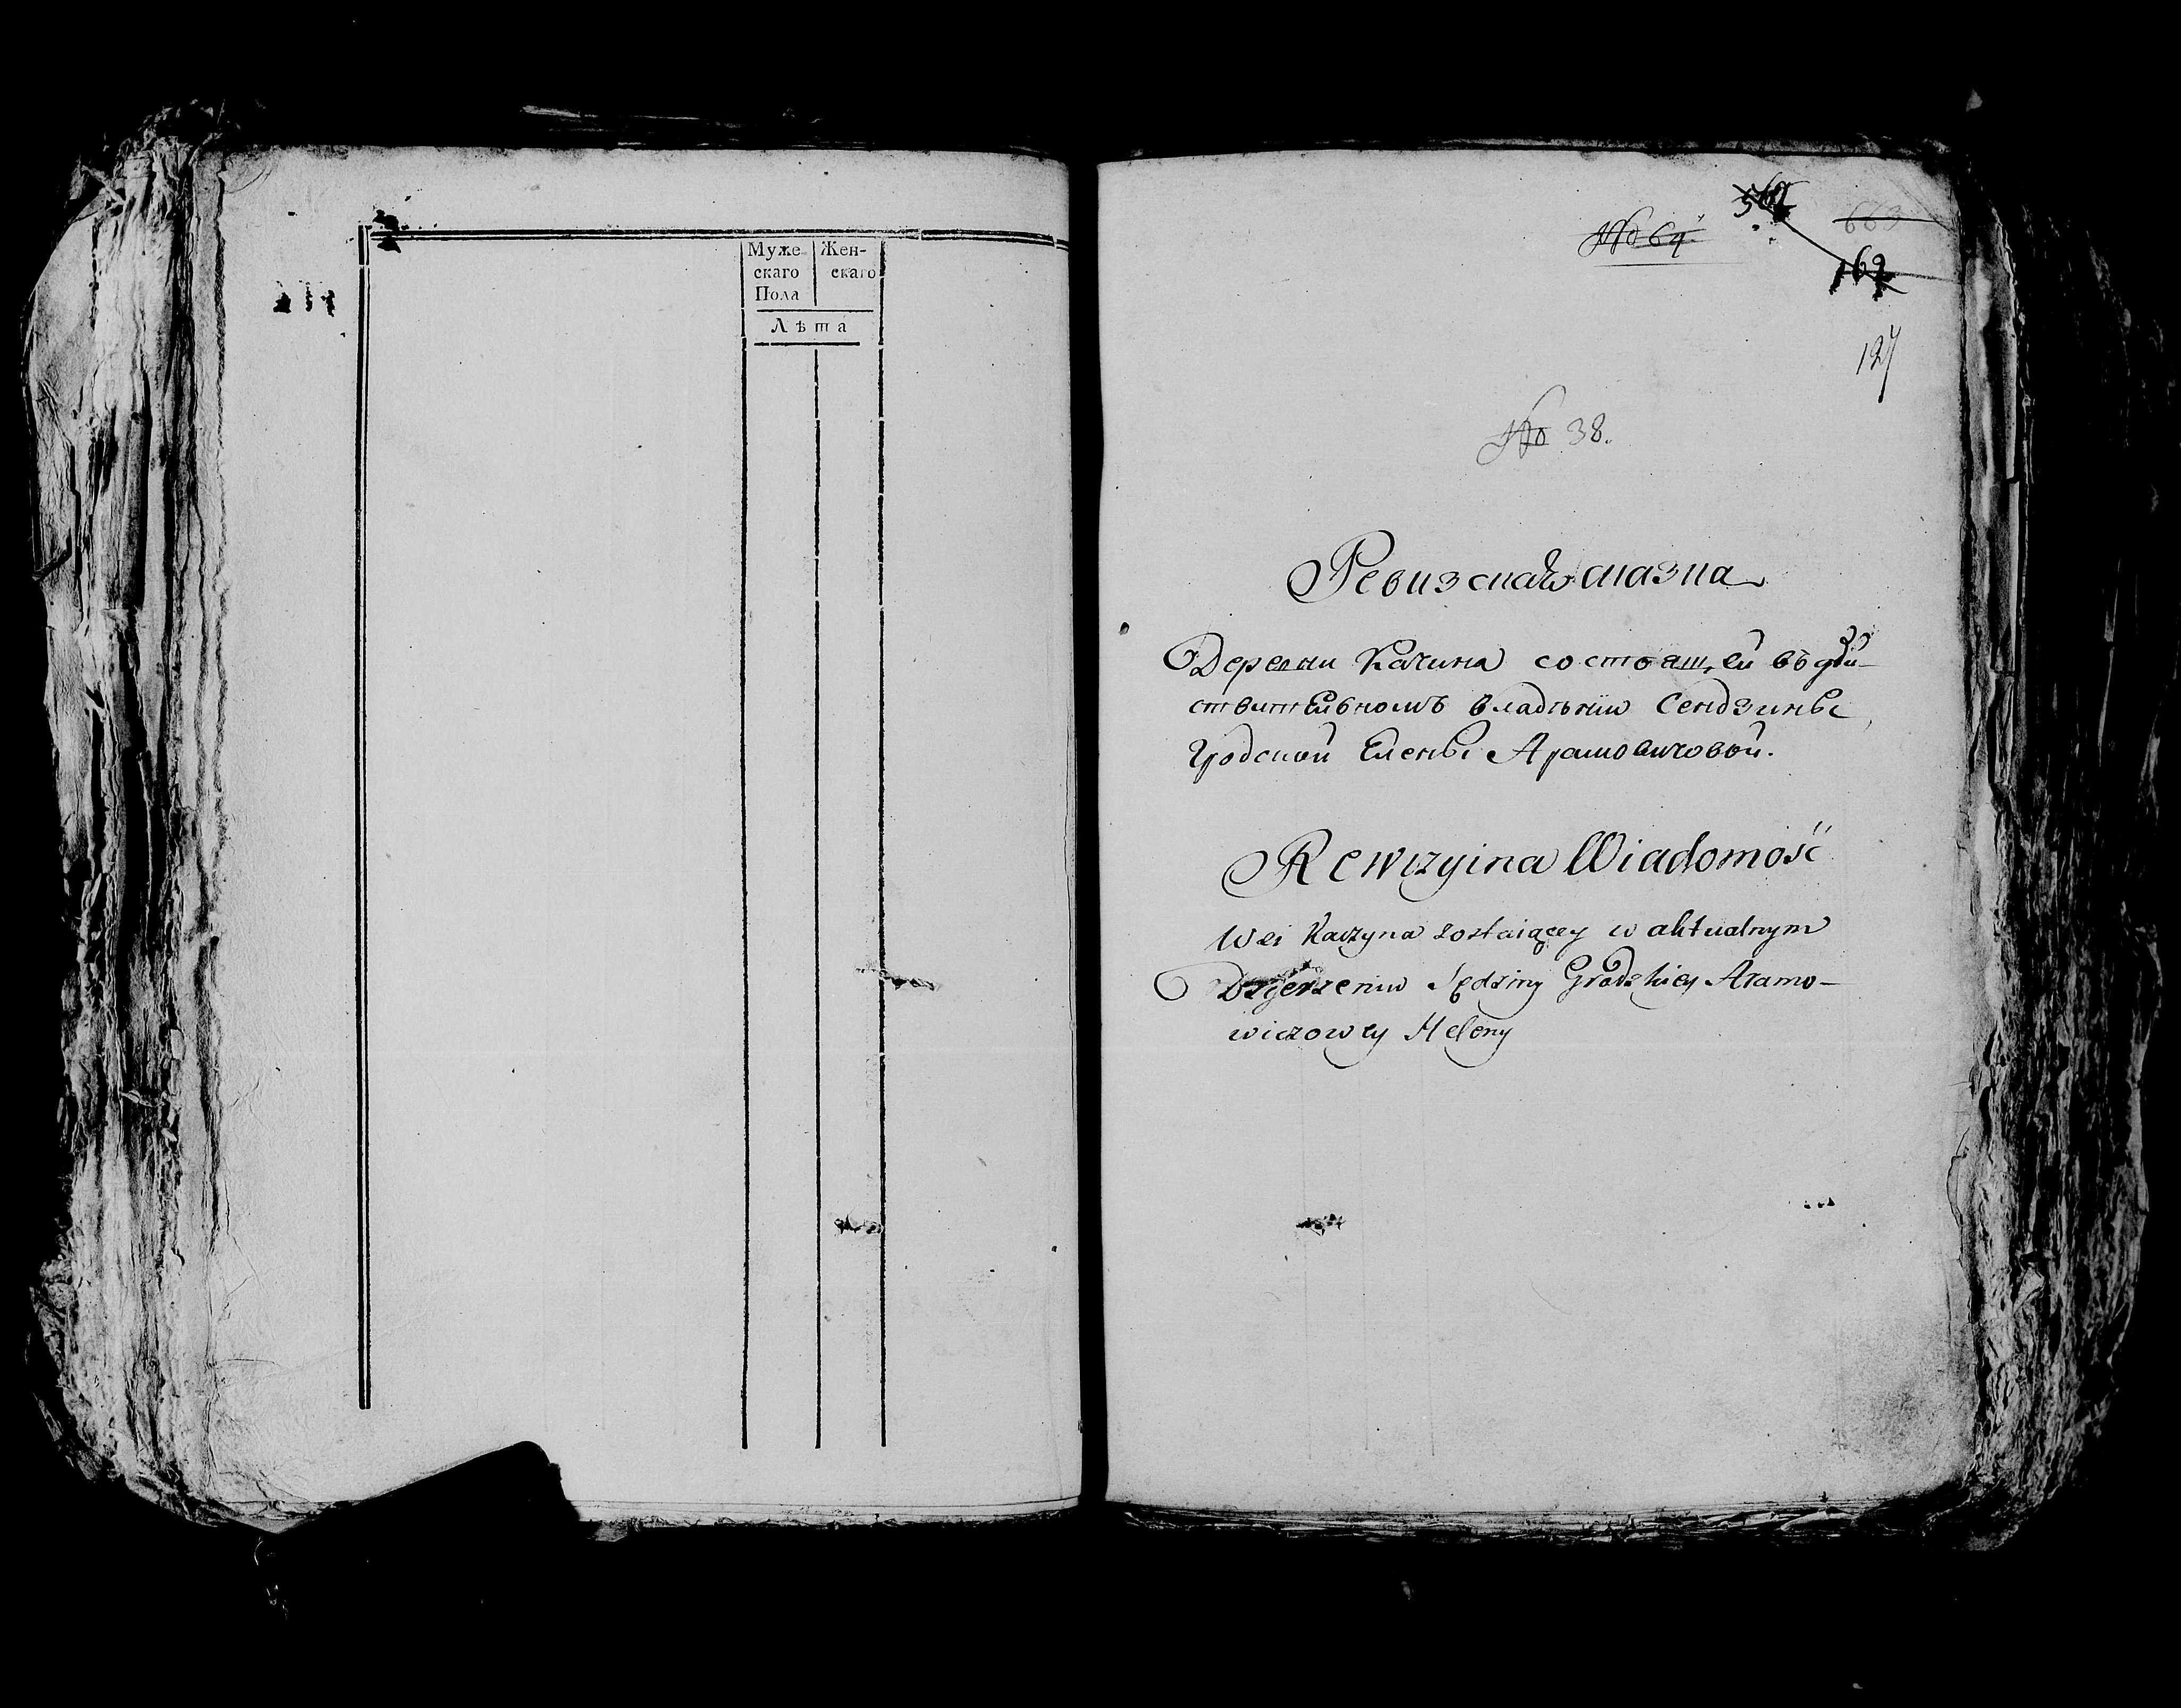 Муже- Жен-
скаго скаго
Пола
Лѣта
No 64
569
663
169
127
No 38.
Ревизская сказка
Деревни Качина состоящей въ дѣй-
ствительномъ владѣніи Сендзины
Гродской Елены Арамовичовой.
Rewizyina Wiadomość
Wsi Kaczyna zostaiącey w aktualnym
Dzierżeniu Sędziny Grodzkiey Aramo-
wiczowey Heleny